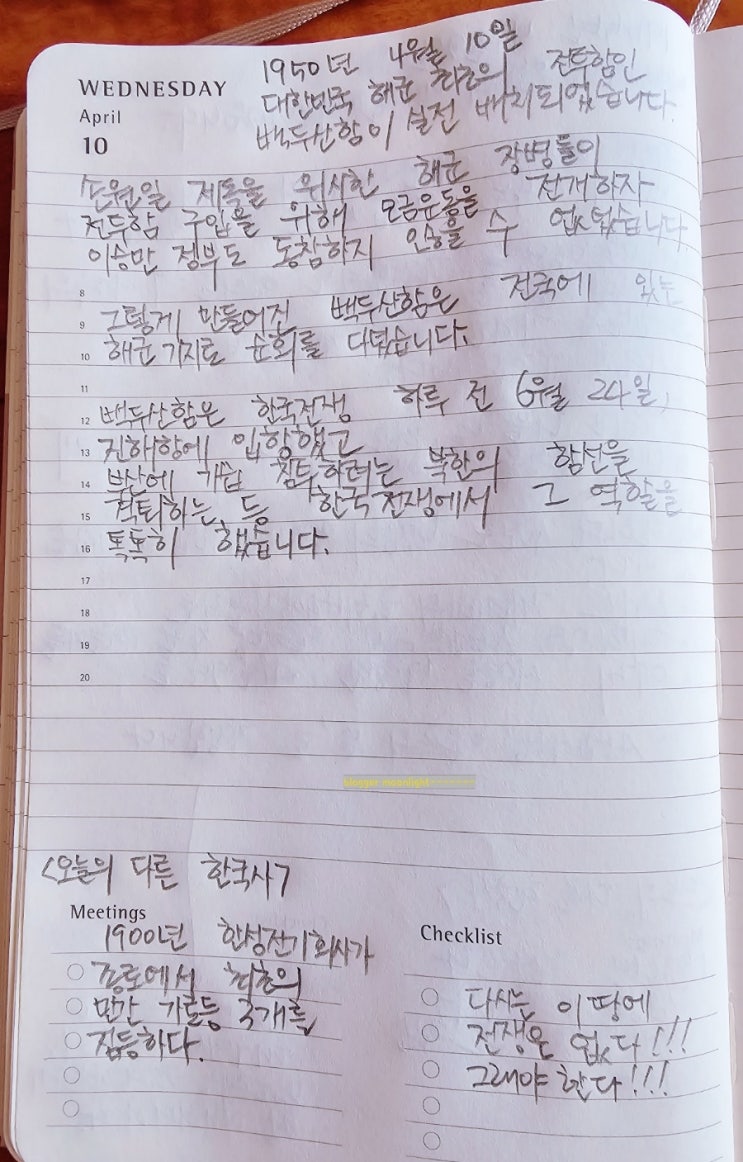 WEDNESDAY
April
10
1950년 4월 10일
대한민국 해군 최초의 전투함인
백두산함이 실전 배치되었습니다.
손원일 제독을 위시한 해군 장병들이
전투함 구입을 위해 모금운동을 전개하자
이승만 정부도 동참하지 않을 수 없었습니다.
8
9 그렇게 만들어진 백두산함은 전국에 있는
10 해군기지로 순회를 다녔습니다.
11
12 백두산함은 한국전쟁 하루 전 6월 24일,
13 진해항에 입항했고
14 부산에 기습 침투하려는 북한의 함선을
15 격퇴하는 등 한국전쟁에서 그 역할을
16 톡톡히 했습니다.
17
18
19
20
blogger moonlight
<오늘의 다른 한국사>
Meetings
1900년 한성전기회사가
종로에서 최초의
민간 가로등 3개를
점등하다.
Checklist
다시는 이 땅에
전쟁은 없다!!!
그래야 한다!!!